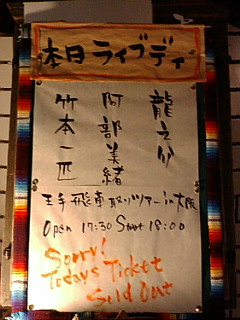 本日ライブディ
龍之介
阿部美緒
竹本一匹
王手飛車取りツアー in 大阪
Open 17:30 Start 18:00
Sorry!
Todays Ticket
Sold Out